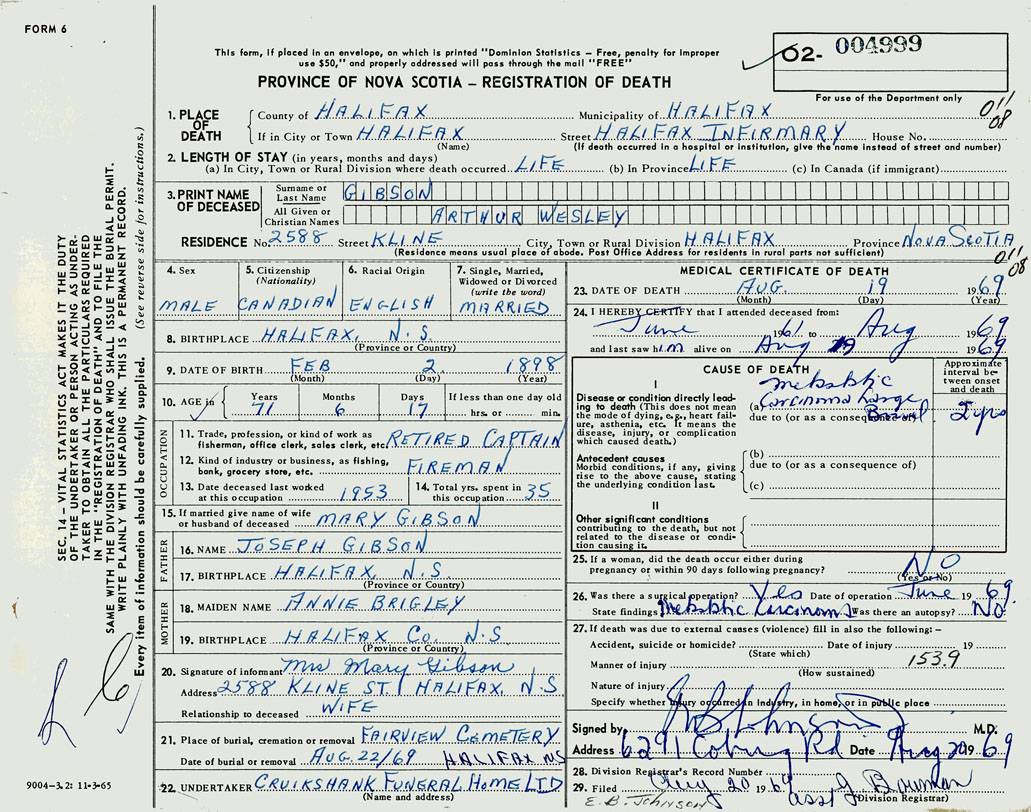 FORM 6
This form, if placed in an envelope, on which is printed "Dominion Statistics – Free, penalty for improper
use $50," and properly addressed will pass through the mail "FREE"
PROVINCE OF NOVA SCOTIA – REGISTRATION OF DEATH
02- 004999
For use of the Department only
011
08
1. PLACE OF DEATH
County of HALIFAX Municipality of HALIFAX
If in City or Town HALIFAX Street HALIFAX INFIRMARY House No.
(Name) (If death occurred in a hospital or institution, give the name instead of street and number)
2. LENGTH OF STAY (in years, months and days)
(a) In City, Town or Rural Division where death occurred LIFE (b) In Province LIFE (c) In Canada (if immigrant)
3. PRINT NAME OF DECEASED
Surname or Last Name GIBSON
All Given or Christian Names ARTHUR WESLEY
RESIDENCE No. 2588 Street KLINE City, Town or Rural Division HALIFAX Province NOVA SCOTIA
(Residence means usual place of abode. Post Office Address for residents in rural parts not sufficient)
011
08
4. Sex
MALE
5. Citizenship
(Nationality)
CANADIAN
6. Racial Origin
ENGLISH
7. Single, Married,
Widowed or Divorced
(write the word)
MARRIED
8. BIRTHPLACE HALIFAX, N.S.
(Province or Country)
9. DATE OF BIRTH FEB 2 1898
(Month) (Day) (Year)
10. AGE in Years Months Days If less than one day old
71 6 17 hrs. or min.
OCCUPATION
11. Trade, profession, or kind of work as
fisherman, office clerk, sales clerk, etc. RETIRED CAPTAIN
12. Kind of industry or business, as fishing,
bank, grocery store, etc. FIREMAN
13. Date deceased last worked
at this occupation 1953
14. Total yrs. spent in
this occupation 35
15. If married give name of wife
or husband of deceased MARY GIBSON
FATHER
16. NAME JOSEPH GIBSON
17. BIRTHPLACE HALIFAX, N.S.
(Province or Country)
MOTHER
18. MAIDEN NAME ANNIE BRIGLEY
19. BIRTHPLACE HALIFAX CO. N.S.
(Province or Country)
20. Signature of informant Mrs Mary Gibson
Address 2588 KLINE ST. HALIFAX, N.S.
Relationship to deceased WIFE
21. Place of burial, cremation or removal FAIRVIEW CEMETERY
Date of burial or removal AUG. 22/69 HALIFAX NS
22. UNDERTAKER CRUIKSHANK FUNERAL HOME LTD
(Name and address)
MEDICAL CERTIFICATE OF DEATH
23. DATE OF DEATH AUG. 19 1969
(Month) (Day) (Year)
24. I HEREBY CERTIFY that I attended deceased from:
June 1961 to Aug 1969
and last saw him alive on Aug 19 1969
CAUSE OF DEATH
Approximate
interval be-
tween onset
and death
I
Disease or condition directly lead-
ing to death (This does not
mean the mode of dying, e.g., heart fail-
ure, asthenia, etc. It means the
disease, injury, or complication
which caused death.)
metastatic
(a) Carcinoma Large
due to (or as a consequence of) Bowel
2 yrs
Antecedent causes
Morbid conditions, if any, giving
rise to the above cause, stating
the underlying condition last.
(b)
due to (or as a consequence of)
(c)
II
Other significant conditions
contributing to the death, but not
related to the disease or condi-
tion causing it.
25. If a woman, did the death occur either during
pregnancy or within 90 days following pregnancy? NO
(Yes or No)
26. Was there a surgical operation? Yes Date of operation June 1969.
State findings Metastatic Carcinoma Was there an autopsy? No.
27. If death was due to external causes (violence) fill in also the following: –
Accident, suicide or homicide? Date of injury 19
(State which)
Manner of injury 153.9
(How sustained)
Nature of injury
Specify whether injury occurred in industry, in home, or in public place
Signed by M.D.
Address 6291 Coburg Rd Date Aug 20 1969
28. Division Registrar's Record Number
29. Filed Aug 20 1969 asst Bowman
(Division Registrar)
E. B. JOHNSON
SEC. 14 – VITAL STATISTICS ACT MAKES IT THE DUTY
OF THE UNDERTAKER OR PERSON ACTING AS UNDER-
TAKER TO OBTAIN ALL THE PARTICULARS REQUIRED
IN THE "REGISTRATION OF DEATH" AND TO FILE THE
SAME WITH THE DIVISION REGISTRAR WHO SHALL ISSUE THE BURIAL PERMIT.
WRITE PLAINLY WITH UNFADING INK. THIS IS A PERMANENT RECORD.
Every item of information should be carefully supplied. (See reverse side for instructions.)
9004-3.2: 11-3-65